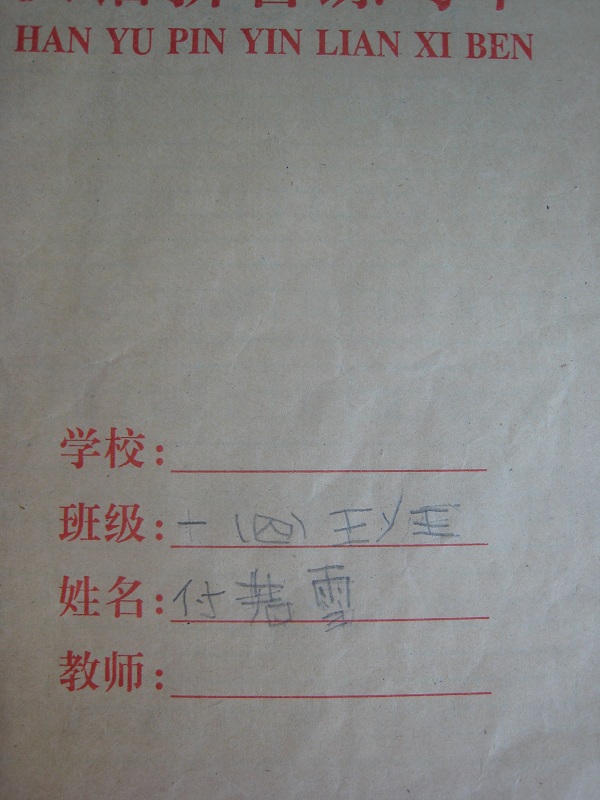 汉语拼音练习本
HAN YU PIN YIN LIAN XI BEN
学校:
班级:一(四)班
姓名:付若雪
教师: